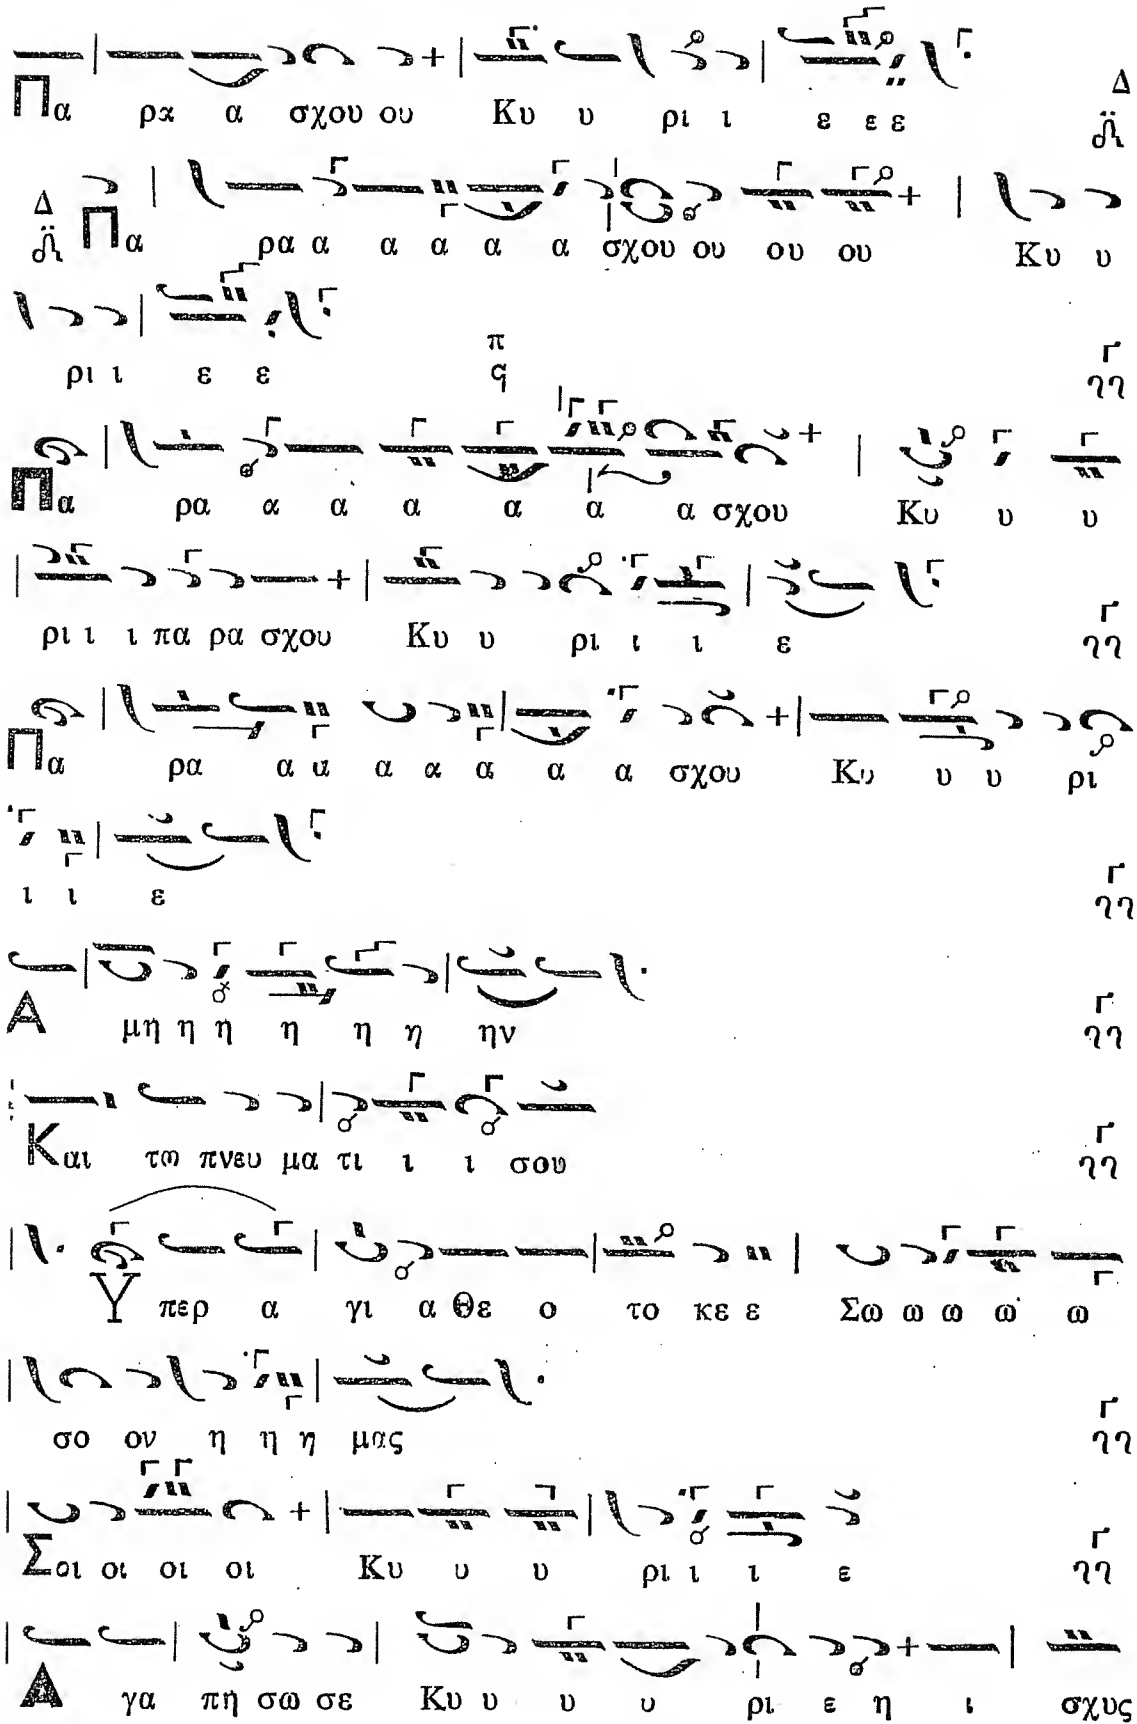 Πα ρα α σχου ου Κυ υ ρι ι ε ε ε Δ
Δ Πα ρα α α α α α σχου ου ου ου Κυ υ
ρι ι ε ε π q Γ
Πα ρα α α α α α α σχου Κυ υ υ
ρι ι ι πα ρα σχου Κυ υ ρι ι ι ε Γ
Πα ρα α α α α α α α σχου Κυ υ υ ρι
ι ι ε Γ
Α μη η η η η η ην Γ
Και τω πνευ μα τι ι ι σου Γ
Υ περ α γι α Θε ο το κε ε Σω ω ω ω ω
σο ον η η η μας Γ
Σοι οι οι οι Κυ υ υ ρι ι ι ε Γ
Α γα πη σω σε Κυ υ υ υ ρι ε η ι σχυς